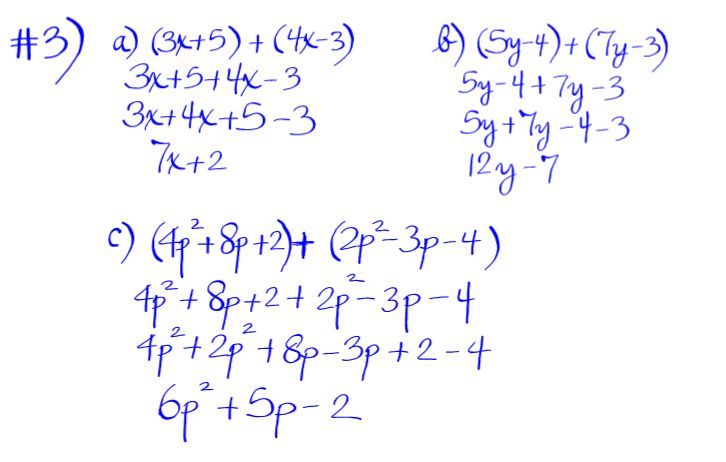 #3) a) (3x+5)+(4x-3)
3x+5+4x-3
3x+4x+5-3
7x+2
b) (5y-4)+(7y-3)
5y-4+7y-3
5y+7y-4-3
12y-7
c) (4p²+8p+2)+(2p²-3p-4)
4p²+8p+2+2p²-3p-4
4p²+2p²+8p-3p+2-4
6p²+5p-2